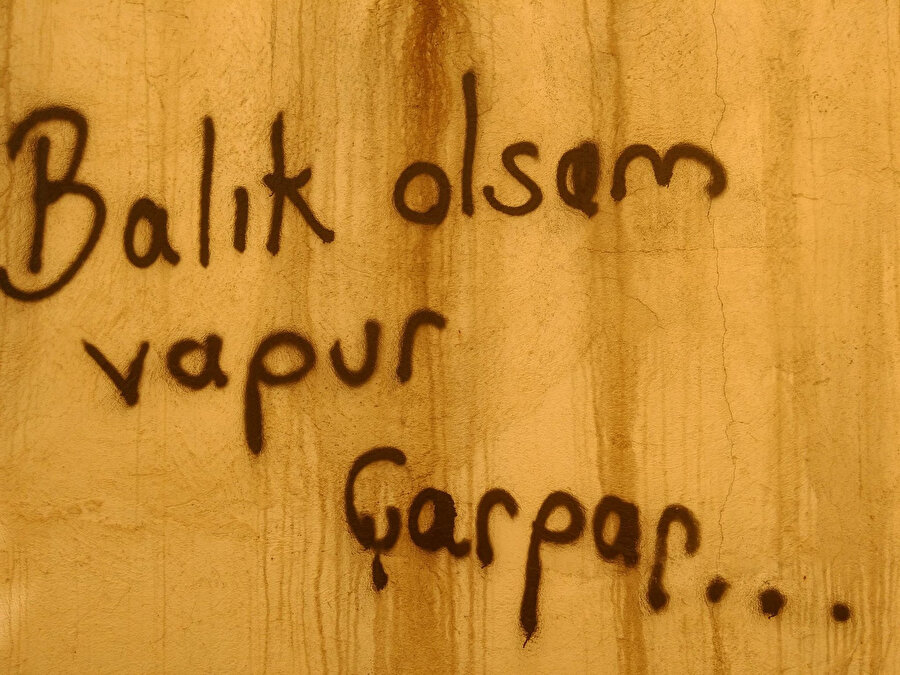 Balık olsam
vapur
Çarpar...